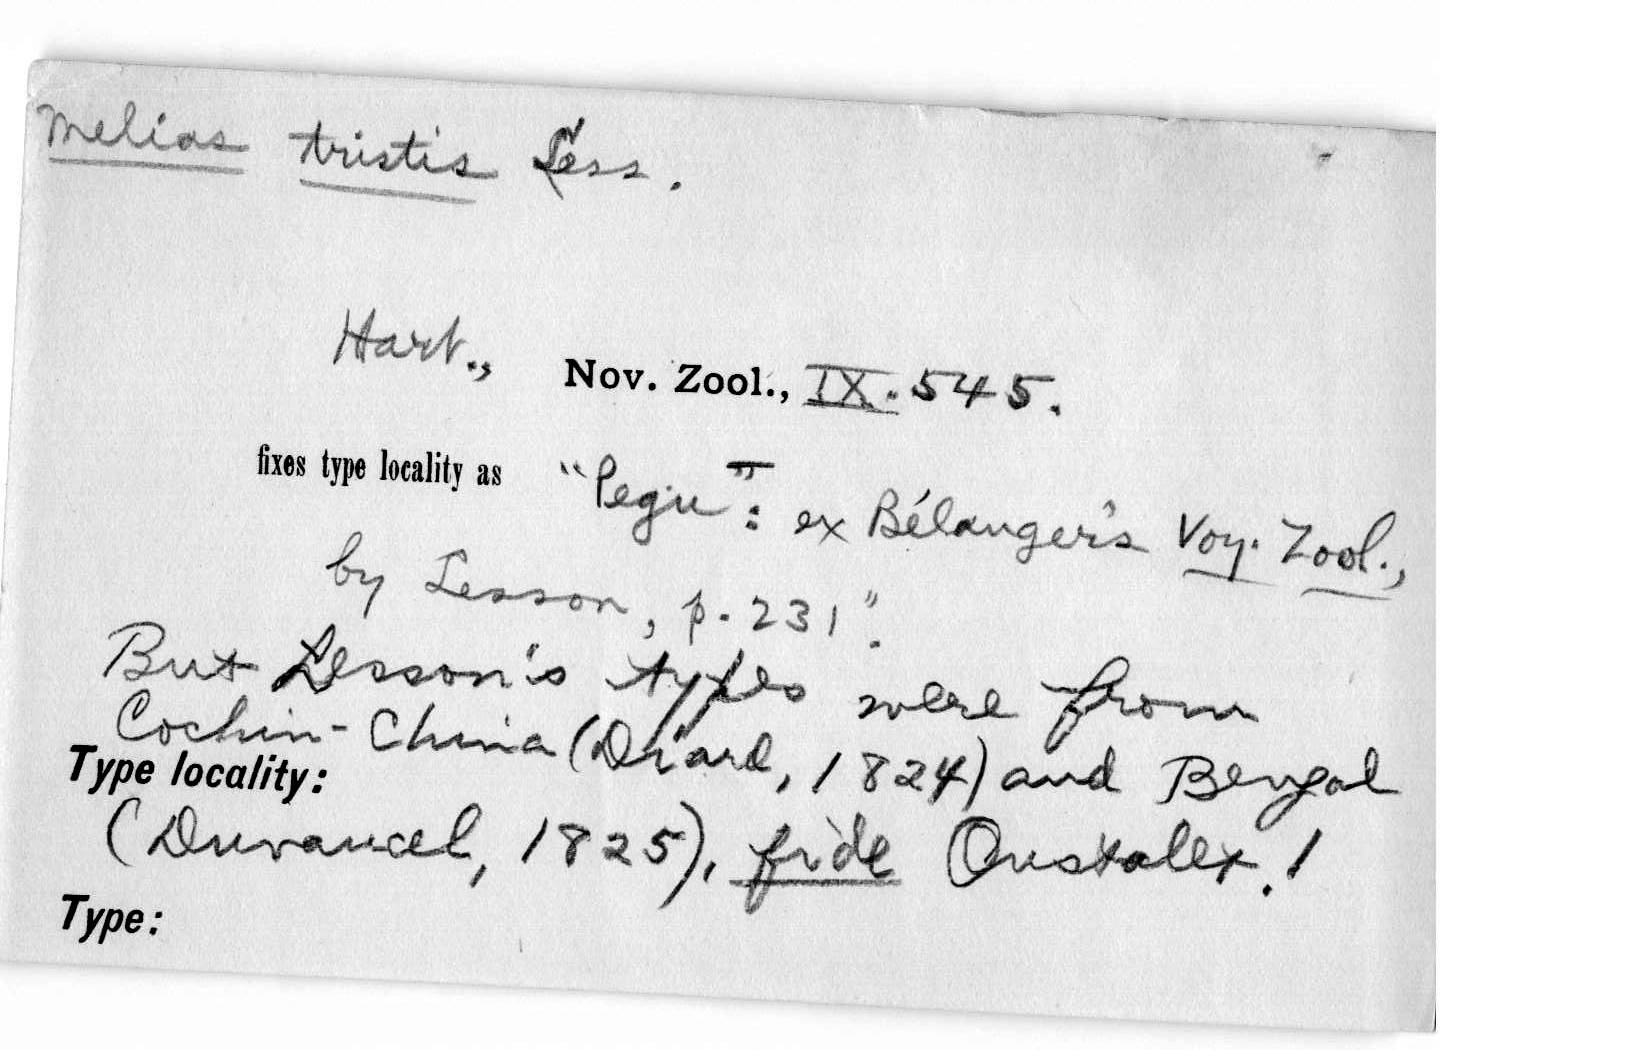 Melias tristis Less.
Hart., Nov. Zool., IX. 545.
fixes type locality as "Pegu": ex Bélanger's Voy. Zool.,
by Lesson, p. 231".
But Lesson's types were from
Cochin-China (Diard, 1824) and Bengal
Type locality:
(Duvaucel, 1825), fide Oustalet.!
Type: